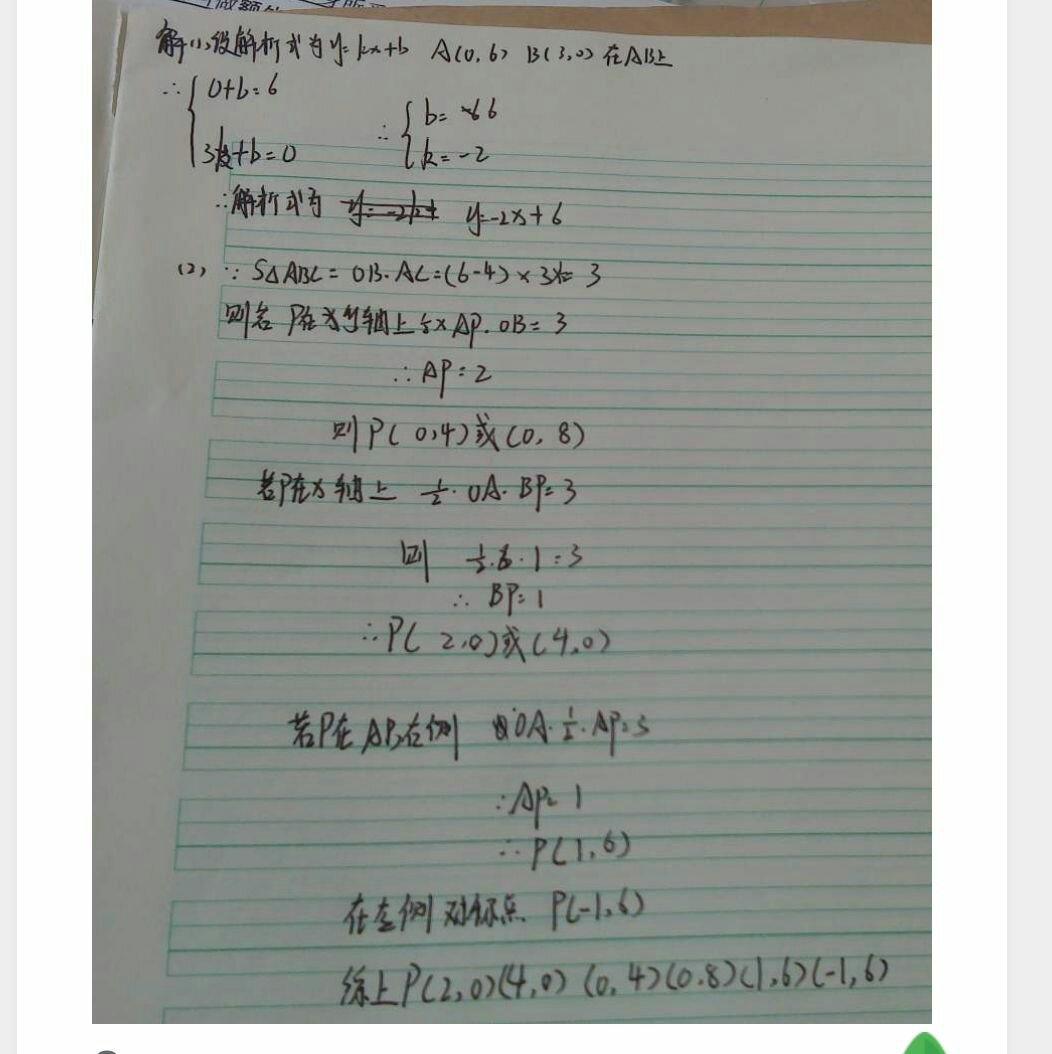 解(1)设解析式为y=kx+b A(0,6) B(3,0)在AB上
∴{0+b=6 ∴{b=6
3k+b=0 k=-2
∴解析式为 y=-2x+6
(2) ∵S△ABC=OB·AC=(6-4)×3×=3
则若P在y轴上 ½×AP·OB=3
∴AP=2
则P(0,4)或(0,8)
若P在x轴上 ½·OA·BP=3
则 ½·6·1=3
∴BP=1
∴P(2,0)或(4,0)
若P在AB右侧 OA·½·AP=3
∴AP=1
∴P(1,6)
在左侧对称点 P(-1,6)
综上P(2,0)(4,0)(0,4)(0.8)(1,6)(-1,6)